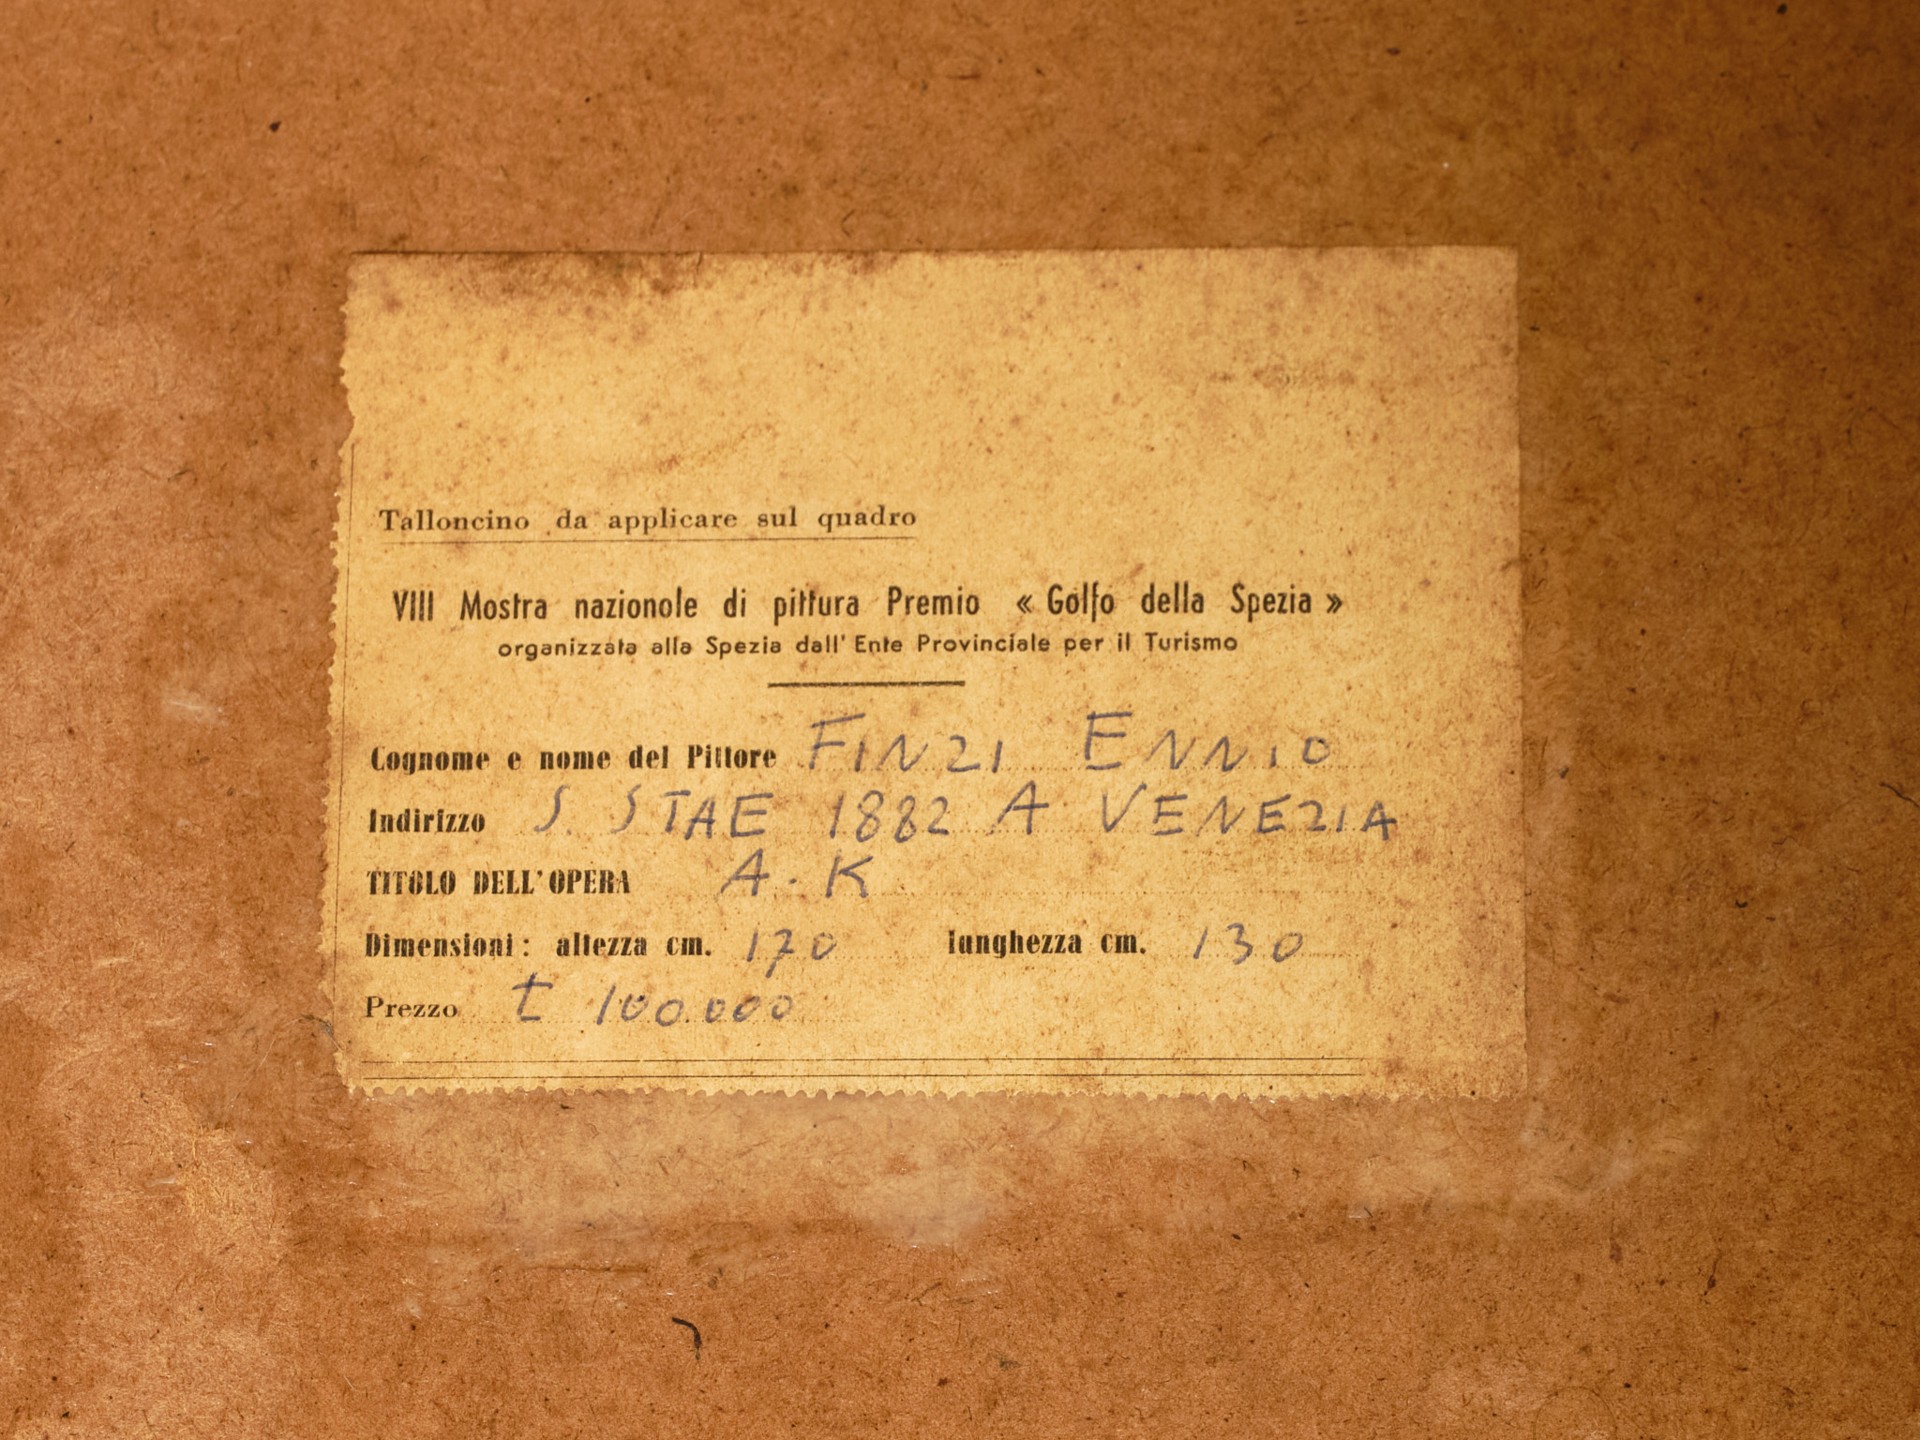 Talloncino da applicare sul quadro
VIII Mostra nazionole di pittura Premio « Golfo della Spezia »
organizzata alla Spezia dall' Ente Provinciale per il Turismo
Cognome e nome del Pittore FINZI ENNIO
Indirizzo S. STAE 1882 A VENEZIA
TITOLO DELL'OPERA A. K
Dimensioni: altezza cm. 170 lunghezza cm. 130
Prezzo £ 100.000